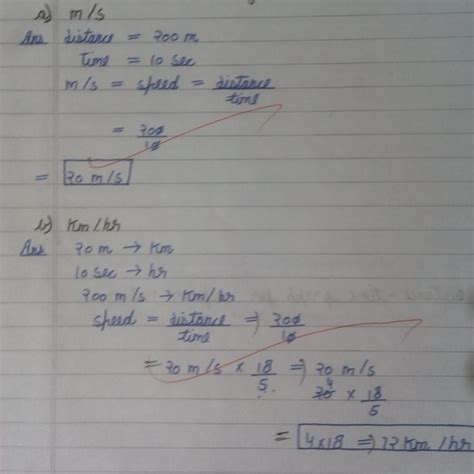 a) m/s
Ans distance = 200 m
Time = 10 sec
m/s = speed = distance/time
= 200/10
= 20 m/s
b) Km/hr
Ans 20 m → Km
10 sec → hr
200 m/s → Km/hr
speed = distance/time ⇒ 200/10
= 20 m/s × 18/5 ⇒ 20 m/s
4 20 × 18/5
= 4×18 ⇒ 72 Km/hr